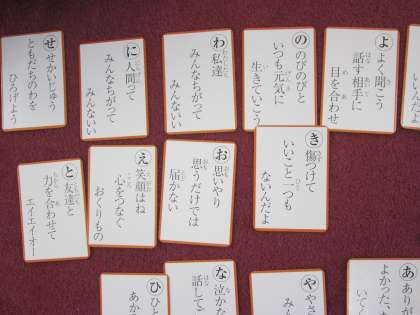 せ
せかいじゅう
ともだちのわを
ひろげよう
に
人間って
みんなちがって
みんないい
わ
私達
みんなちがって
みんないい
の
のびのびと
いつも元気に
生きていこう
よ
よく聞こう
話す相手に
目を合わせ
と
友達と
力を合わせて
エイエイオー
え
笑顔はね
心をつなぐ
おくりもの
お
思いやり
思うだけでは
届かない
き
傷つけて
いいこと一つも
ないんだよ
ひ
な
泣かな
話して
や
あ
よかった